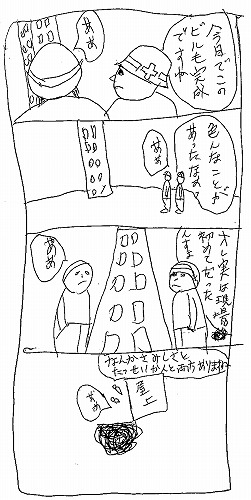 今日でこの
ビルも完成
ですね
ああ
色んなことが
あったなあ
ああ
オレ実は現場
初めてだった
んすよ
ああ
なんかさみしさと
たっせいかんと両方ありますね
屋上
ああ